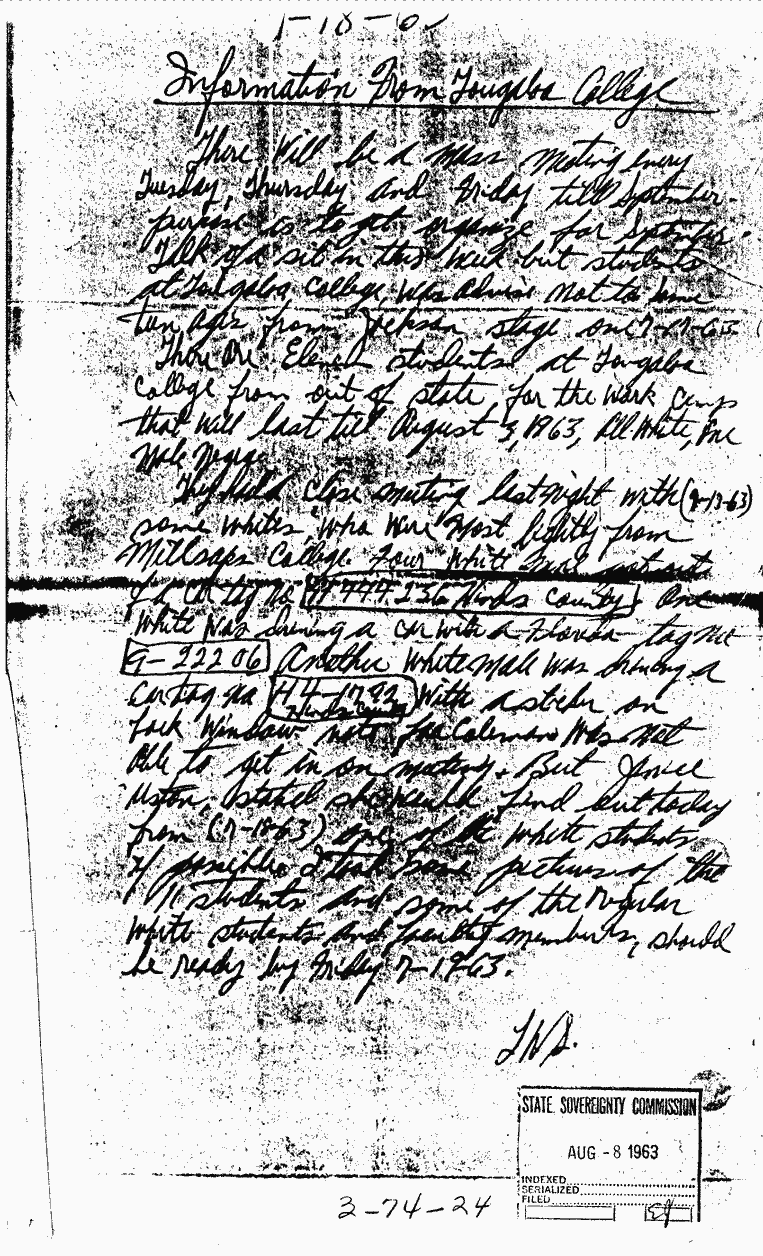 Information From Tougaloo College
There will be a mass meeting every
Tuesday, Thursday and Friday till September.
purpose is to get organize for September.
Talk of a sit in this week but students
at Tougaloo College, was advise not to some
teen ages from Jackson stage one 7-17-63
There are Eleven students at Tougaloo
College from out of state for the work camp
that will last till August 3, 1963, All White, One
Male Negroe
They held close meeting last night with (7-17-63)
some whites who were most lightly from
Millsaps College. Four white got out
of a car tag no H 444.236 Hinds county. One
white was driving a car with a Florida tag no
9-22206 Another White male was driving a
car tag no H4-1792 with a sticker on
Hinds County
back window not Joe Coleman was not
able to get in on meeting. But
stated she would find out today
from (7-18-63) one of the white students
if possible. I took some pictures of the
11 students and some of the regular
white students and faculty members, should
be ready by Friday 7-19-63.
STATE SOVEREIGNTY COMMISSION
AUG -8 1963
INDEXED
SERIALIZED
FILED
3-74-24